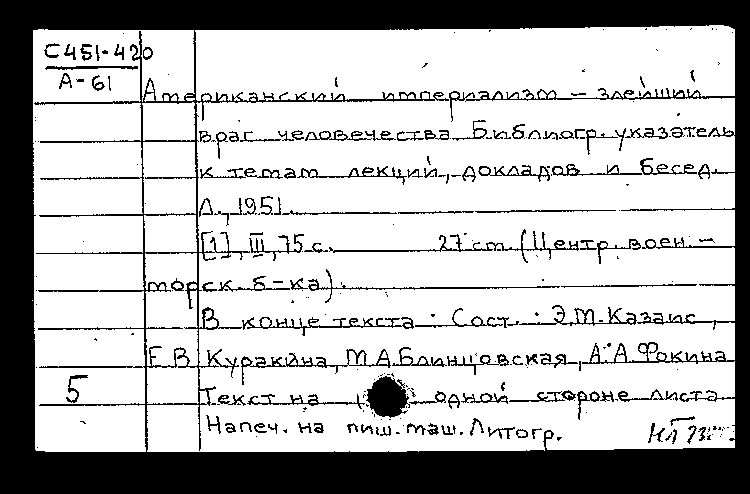 С451-420
А-61
Американский империализм – злейший
враг человечества Библиогр. указатель
к темам лекций, докладов и бесед.
Л., 1951.
[1], III, 75 с. 27 см. (Центр. воен.-
морск. б-ка).
В конце текста: Сост.: Э.М. Казаис,
Е.В. Куракина, М.А. Блинцовская, А.А. Фокина
Текст на одной стороне листа
5
Напеч. на пиш. маш. Литогр.